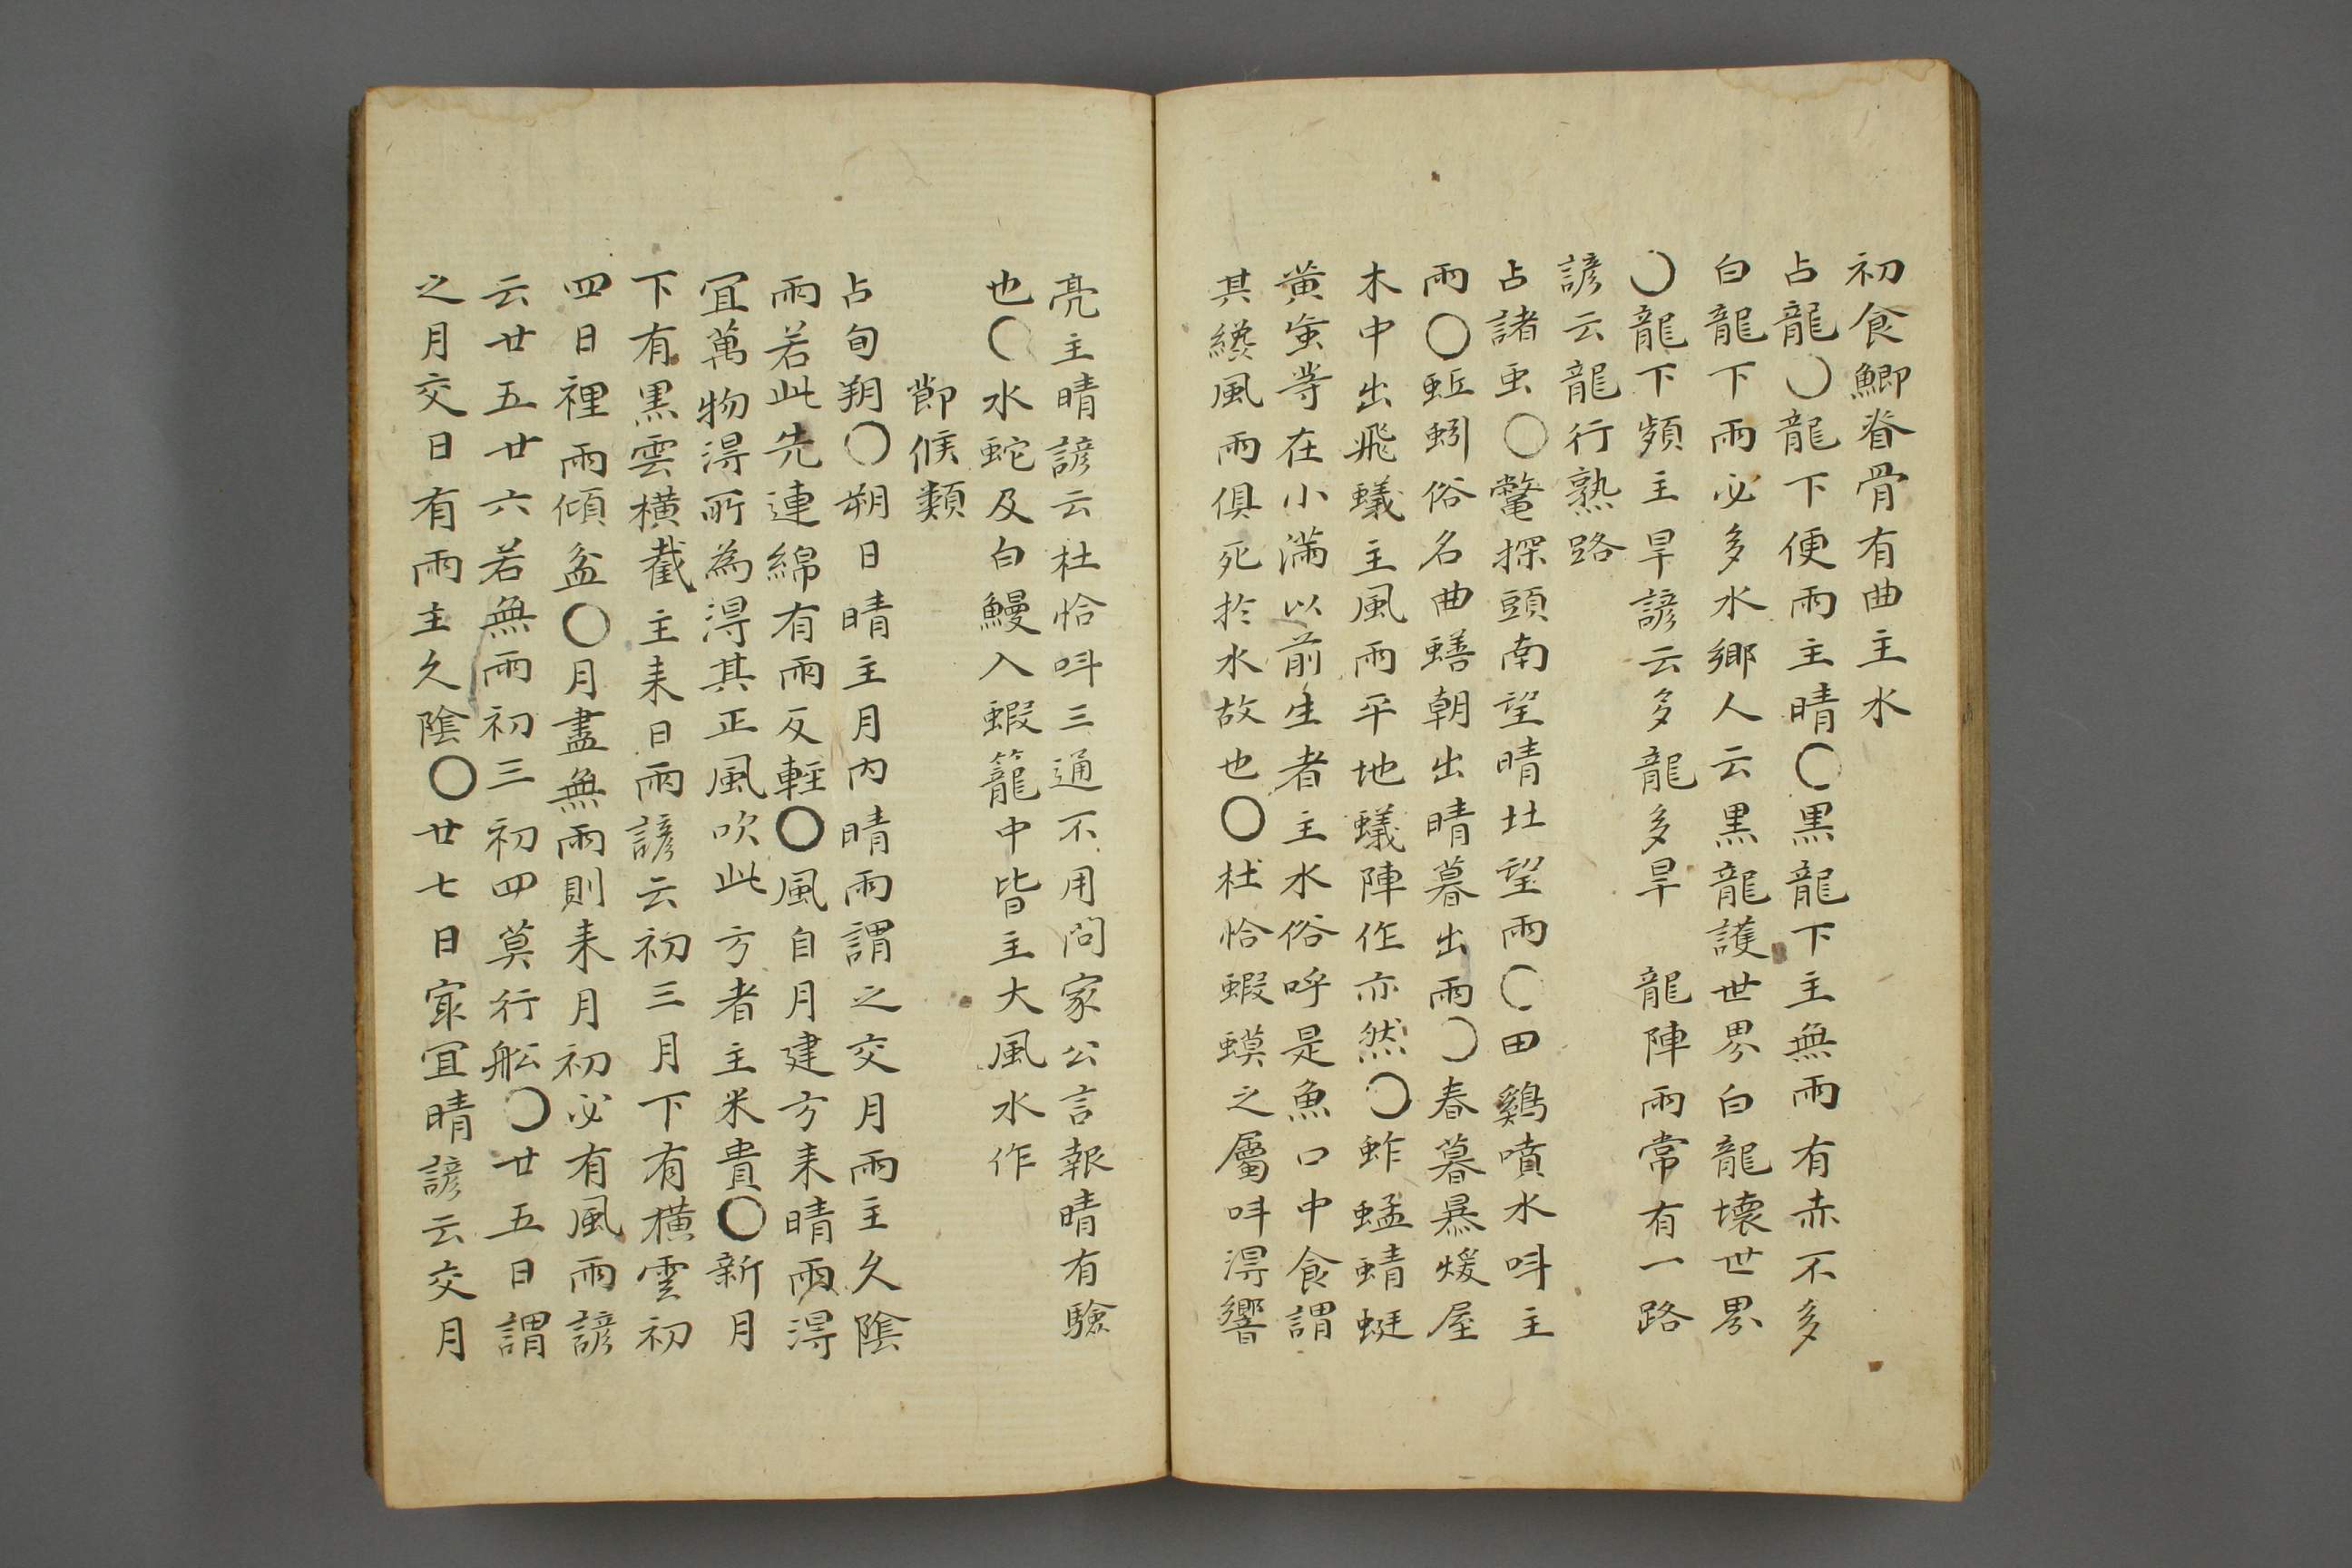 初食鯽脊骨有曲主水
占龍〇龍下便雨主晴〇黒龍下主無雨有赤不多
白龍下雨必多水鄉人云黒龍護世界白龍壞世界
〇龍下頻主旱諺云多龍多旱　龍陣雨常有一路
諺云龍行熟路
占諸虫〇鼈探頭南望晴北望雨〇田鷄噴水叫主
雨〇蚯蚓俗名曲蟮朝出晴暮出雨〇春暮暴煖屋
木中出飛蟻主風雨平地蟻陣作亦然〇蚱蜢蜻蜓
黄䖟等在小滿以前生者主水俗呼是魚口中食謂
其纔風雨俱死於水故也〇杜恰蝦蟆之屬叫得響
亮主晴諺云杜恰叫三通不用問家公言報晴有驗
也〇水蛇及白鰻入蝦籠中皆主大風水作
節候類
占旬朔〇朔日晴主月内晴雨謂之交月雨主久陰
雨若此先連綿有雨反輕〇風自月建方来晴雨得
冝萬物得所為得其正風吹此方者主米貴〇新月
下有黒雲横截主来日雨諺云初三月下有横雲初
四日裡雨傾盆〇月盡無雨則来月初必有風雨諺
云廿五廿六若無雨初三初四莫行舩〇廿五日謂
之月交日有雨主久陰〇廿七日㝡冝晴諺云交月